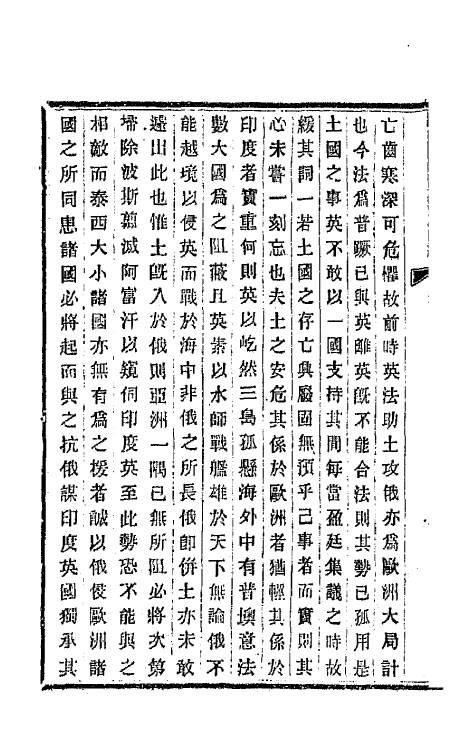 亡齒寒深可危懼故前時英法助土攻俄亦爲歐洲大局計
也今法爲普蹶已與英離英旣不能合法則其勢已孤用是
土國之事英不敢以一國支持其間每當盈廷集議之時故
緩其詞一若土國之存亡興廢固無預乎己事者而實則其
心未嘗一刻忘也夫土之安危其係於歐洲者猶輕其係於
印度者實重何則英以屹然三島孤懸海外中有普墺意法
數大國爲之阻蔽且英素以水師戰艦雄於天下無論俄不
能越境以侵英而戰於海中非俄之所長俄卽併土亦未敢
遽出此也惟土旣入於俄則亞洲一隅已無所阻必將次第
埽除波斯翦滅阿富汗以窺伺印度英至此勢恐不能與之
相敵而泰西大小諸國亦無有爲之援者誠以俄侵歐洲諸
國之所同患諸國必將起而與之抗俄謀印度英國獨承其